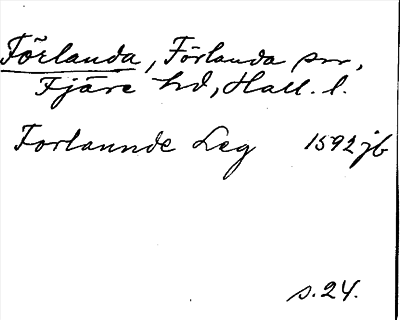 Förlanda, Förlanda sn,
Fjäre hd, Hall. l.
Forlannde Leg 1592 jb
s. 24.